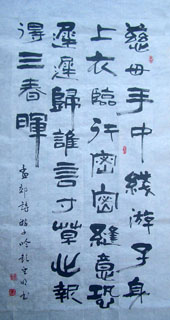 慈母手中綫游子身
上衣臨行密密縫意恐
遲遲歸誰言寸草心報
得三春暉
孟郊詩游子吟